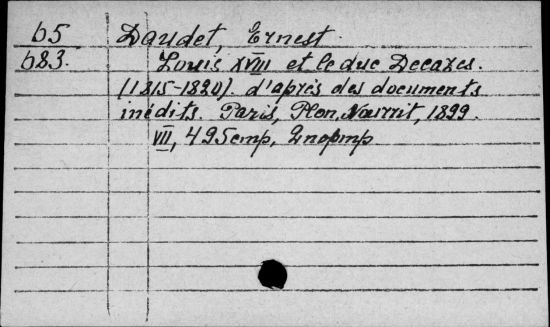 b5 Daudet, Ernest.
b83. Louis XVIII et le duc Decazes.
(1815-1820). d'après des documents
inédits. Paris, Plon, Nourrit, 1899.
VII, 495cmp, 2nopmp.